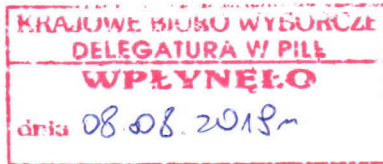 KRAJOWE BIURO WYBORCZE
DELEGATURA W PILE
WPŁYNĘŁO
dnia 08.08.2019r